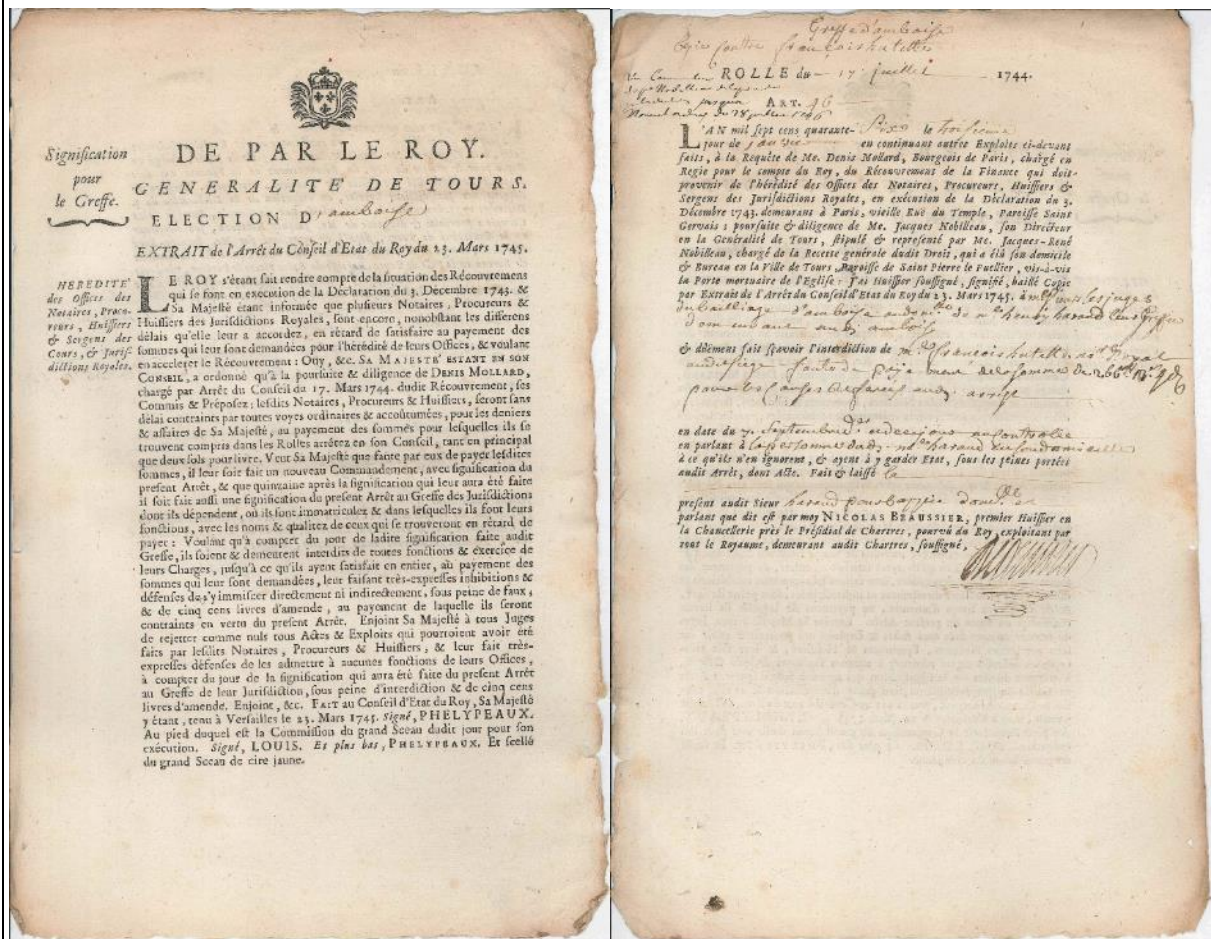 Signification
pour
le Greffe.
DE PAR LE ROY.
GENERALITÉ DE TOURS.
ELECTION D'amboise
EXTRAIT de l'Arrêt du Conseil d'Etat du Roy du 23. Mars 1745.
HEREDITÉ
des Offices des
Notaires, Procu-
reurs, Huissiers
& Sergens des
Cours, & Juris-
dictions Royales.
LE ROY s'étant fait rendre compte de la situation des Récouvremens
qui se font en execution de la Déclaration du 3. Décembre 1743. &
Sa Majesté étant informée que plusieurs Notaires, Procureurs &
Huissiers des Jurisdictions Royales, sont encore, nonobstant les differens
délais qu'elle leur a accordez, en rétard de satisfaire au payement des
sommes qui leur sont demandées pour l'hérédité de leurs Offices, & voulant
en accelerer le Récouvrement : Ouy, &c. SA MAJESTÉ ESTANT EN SON
CONSEIL, a ordonné qu'à la poursuite & diligence de DENIS MOLLARD,
chargé par Arrêt du Conseil du 17. Mars 1744. dudit Récouvrement, ses
Commis & Préposez ; lesdits Notaires, Procureurs & Huissiers, seront sans
délai contraints par toutes voyes ordinaires & accoûtumées, pour les deniers
& affaires de Sa Majesté, au payement des sommes pour lesquelles ils se
trouvent compris dans les Rolles arrêtez en son Conseil, tant en principal
que deux sols pour livre. Veut Sa Majesté que faute par eux de payer lesdites
sommes, il leur soit fait un nouveau Commandement, avec signification du
présent Arrêt, & que quinzaine après la signification qui leur aura été faite
il soit fait aussi une signification du present Arrêt au Greffe des Jurisdictions
dont ils dépendent, où ils sont immatriculez & dans lesquelles ils font leurs
fonctions, avec les noms & qualitez de ceux qui se trouveront en rétard de
payer : Voulant qu'à compter du jour de ladite signification faite audit
Greffe, ils soient & demeurent interdits de toutes fonctions & exercice de
leurs Charges, jusqu'à ce qu'ils ayent satisfait en entier, au payement des
sommes qui leur sont demandées, leur faisant très-expresses inhibitions &
défenses de s'y immiscer directement ni indirectement, sous peine de faux,
& de cinq cens livres d'amende, au payement de laquelle ils seront
contraints en vertu du present Arrêt. Enjoint Sa Majesté à tous Juges
de rejetter comme nuls tous Actes & Exploits qui pourroient avoir été
faits par lesdits Notaires, Procureurs & Huissiers, & leur fait très-
expresses défenses de les admettre à aucunes fonctions de leurs Offices,
à compter du jour de la signification qui aura été faite du present Arrêt
au Greffe de leur Jurisdiction, sous peine d'interdiction & de cinq cens
livres d'amende. Enjoint, &c. FAIT au Conseil d'Etat du Roy, Sa Majesté
y étant, tenu à Versailles le 23. Mars 1745. Signé, PHELYPEAUX.
Au pied duquel est la Commission du grand Sceau dudit jour pour son
exécution. Signé, LOUIS. Et plus bas, PHELYPEAUX. Et scellé
du grand Sceau de cire jaune.
Greffe d'amboise
Copie contre françois hutelle
ROLLE du 17 juillet 1744.
ART. 46
L'AN mil sept cens quarante-Six le troisieme
jour de janvier en continuant autres Exploits ci-devant
faits, à la Requête de Me. Denis Mollard, Bourgeois de Paris, chargé en
Regie pour le compte du Roy, du Récouvrement de la Finance qui doit
provenir de l'hérédité des Offices des Notaires, Procureurs, Huissiers &
Sergens des Jurisdictions Royales, en exécution de la Déclaration du 3.
Décembre 1743. demeurant à Paris, vieille Ruë du Temple, Paroisse Saint
Gervais ; poursuite & diligence de Me. Jacques Nobilleau, son Directeur
en la Généralité de Tours, stipulé & representé par Me. Jacques-René
Nobilleau, chargé de la Recette générale dudit Droit, qui a élû son domicile
& Bureau en la Ville de Tours, Paroisse de Saint Pierre le Puellier, vis-à-vis
la Porte mortuaire de l'Eglise ; J'ai Huissier soussigné, signifié, baillé Copie
par Extrait de l'Arrêt du Conseil d'Etat du Roy du 23. Mars 1745. à les juges
du bailliage d'amboise de havard leur Greffier
demeurant amboise
& dûëment fait sçavoir l'interdiction de françois hutelle Royal
audit siege faute de payement de la somme de
pour les causes arrest
en date du
en parlant à la personne havard
à ce qu'ils n'en ignorent, & ayent à y garder Etat, sous les peines portées
audit Arrêt, dont Acte. Fait & laissé la
present audit Sieur havard
parlant que dit est par moy NICOLAS BEAUSSIER, premier Huissier en
la Chancellerie près le Présidial de Chartres, pourvû du Roy, exploitant par
tout le Royaume, demeurant audit Chartres, soussigné.